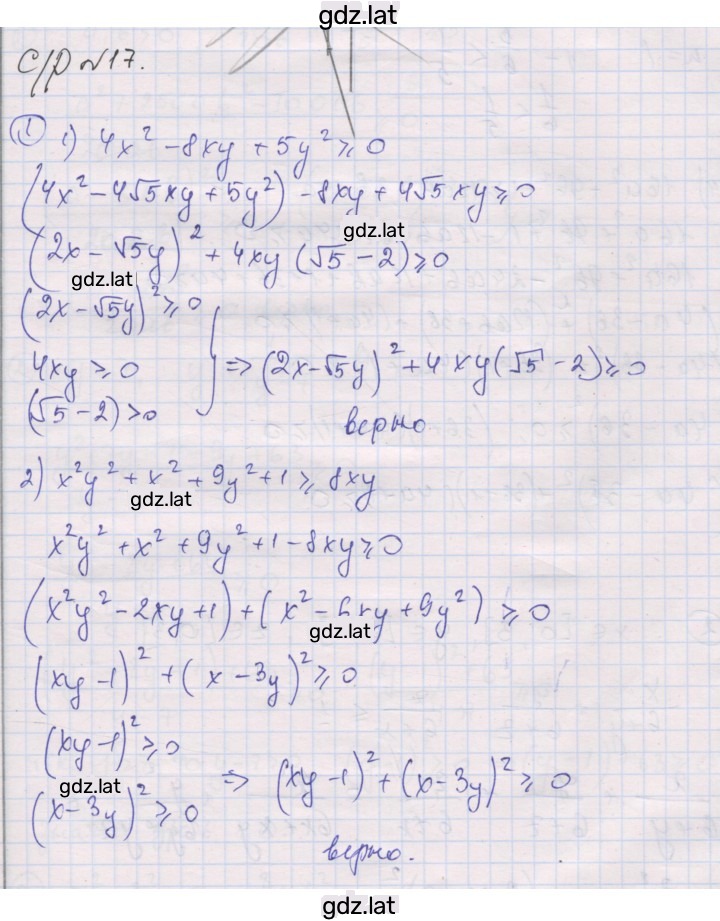 gdz.lat
С/Р №17.
① 1) 4x² - 8xy + 5y² ≥ 0
(4x² - 4√5xy + 5y²) - 8xy + 4√5xy ≥ 0
gdz.lat
(2x - √5y)² + 4xy (√5 - 2) ≥ 0
gdz.lat
(2x - √5y)² ≥ 0
4xy ≥ 0
(√5 - 2) > 0
} ⇒ (2x - √5y)² + 4xy(√5 - 2) ≥ 0
верно
2) x²y² + x² + 9y² + 1 ≥ 8xy
gdz.lat
x²y² + x² + 9y² + 1 - 8xy ≥ 0
(x²y² - 2xy + 1) + (x² - 6xy + 9y²) ≥ 0
gdz.lat
(xy - 1)² + (x - 3y)² ≥ 0
(xy - 1)² ≥ 0
gdz.lat
(x - 3y)² ≥ 0
⇒ (xy - 1)² + (x - 3y)² ≥ 0
верно.
gdz.lat